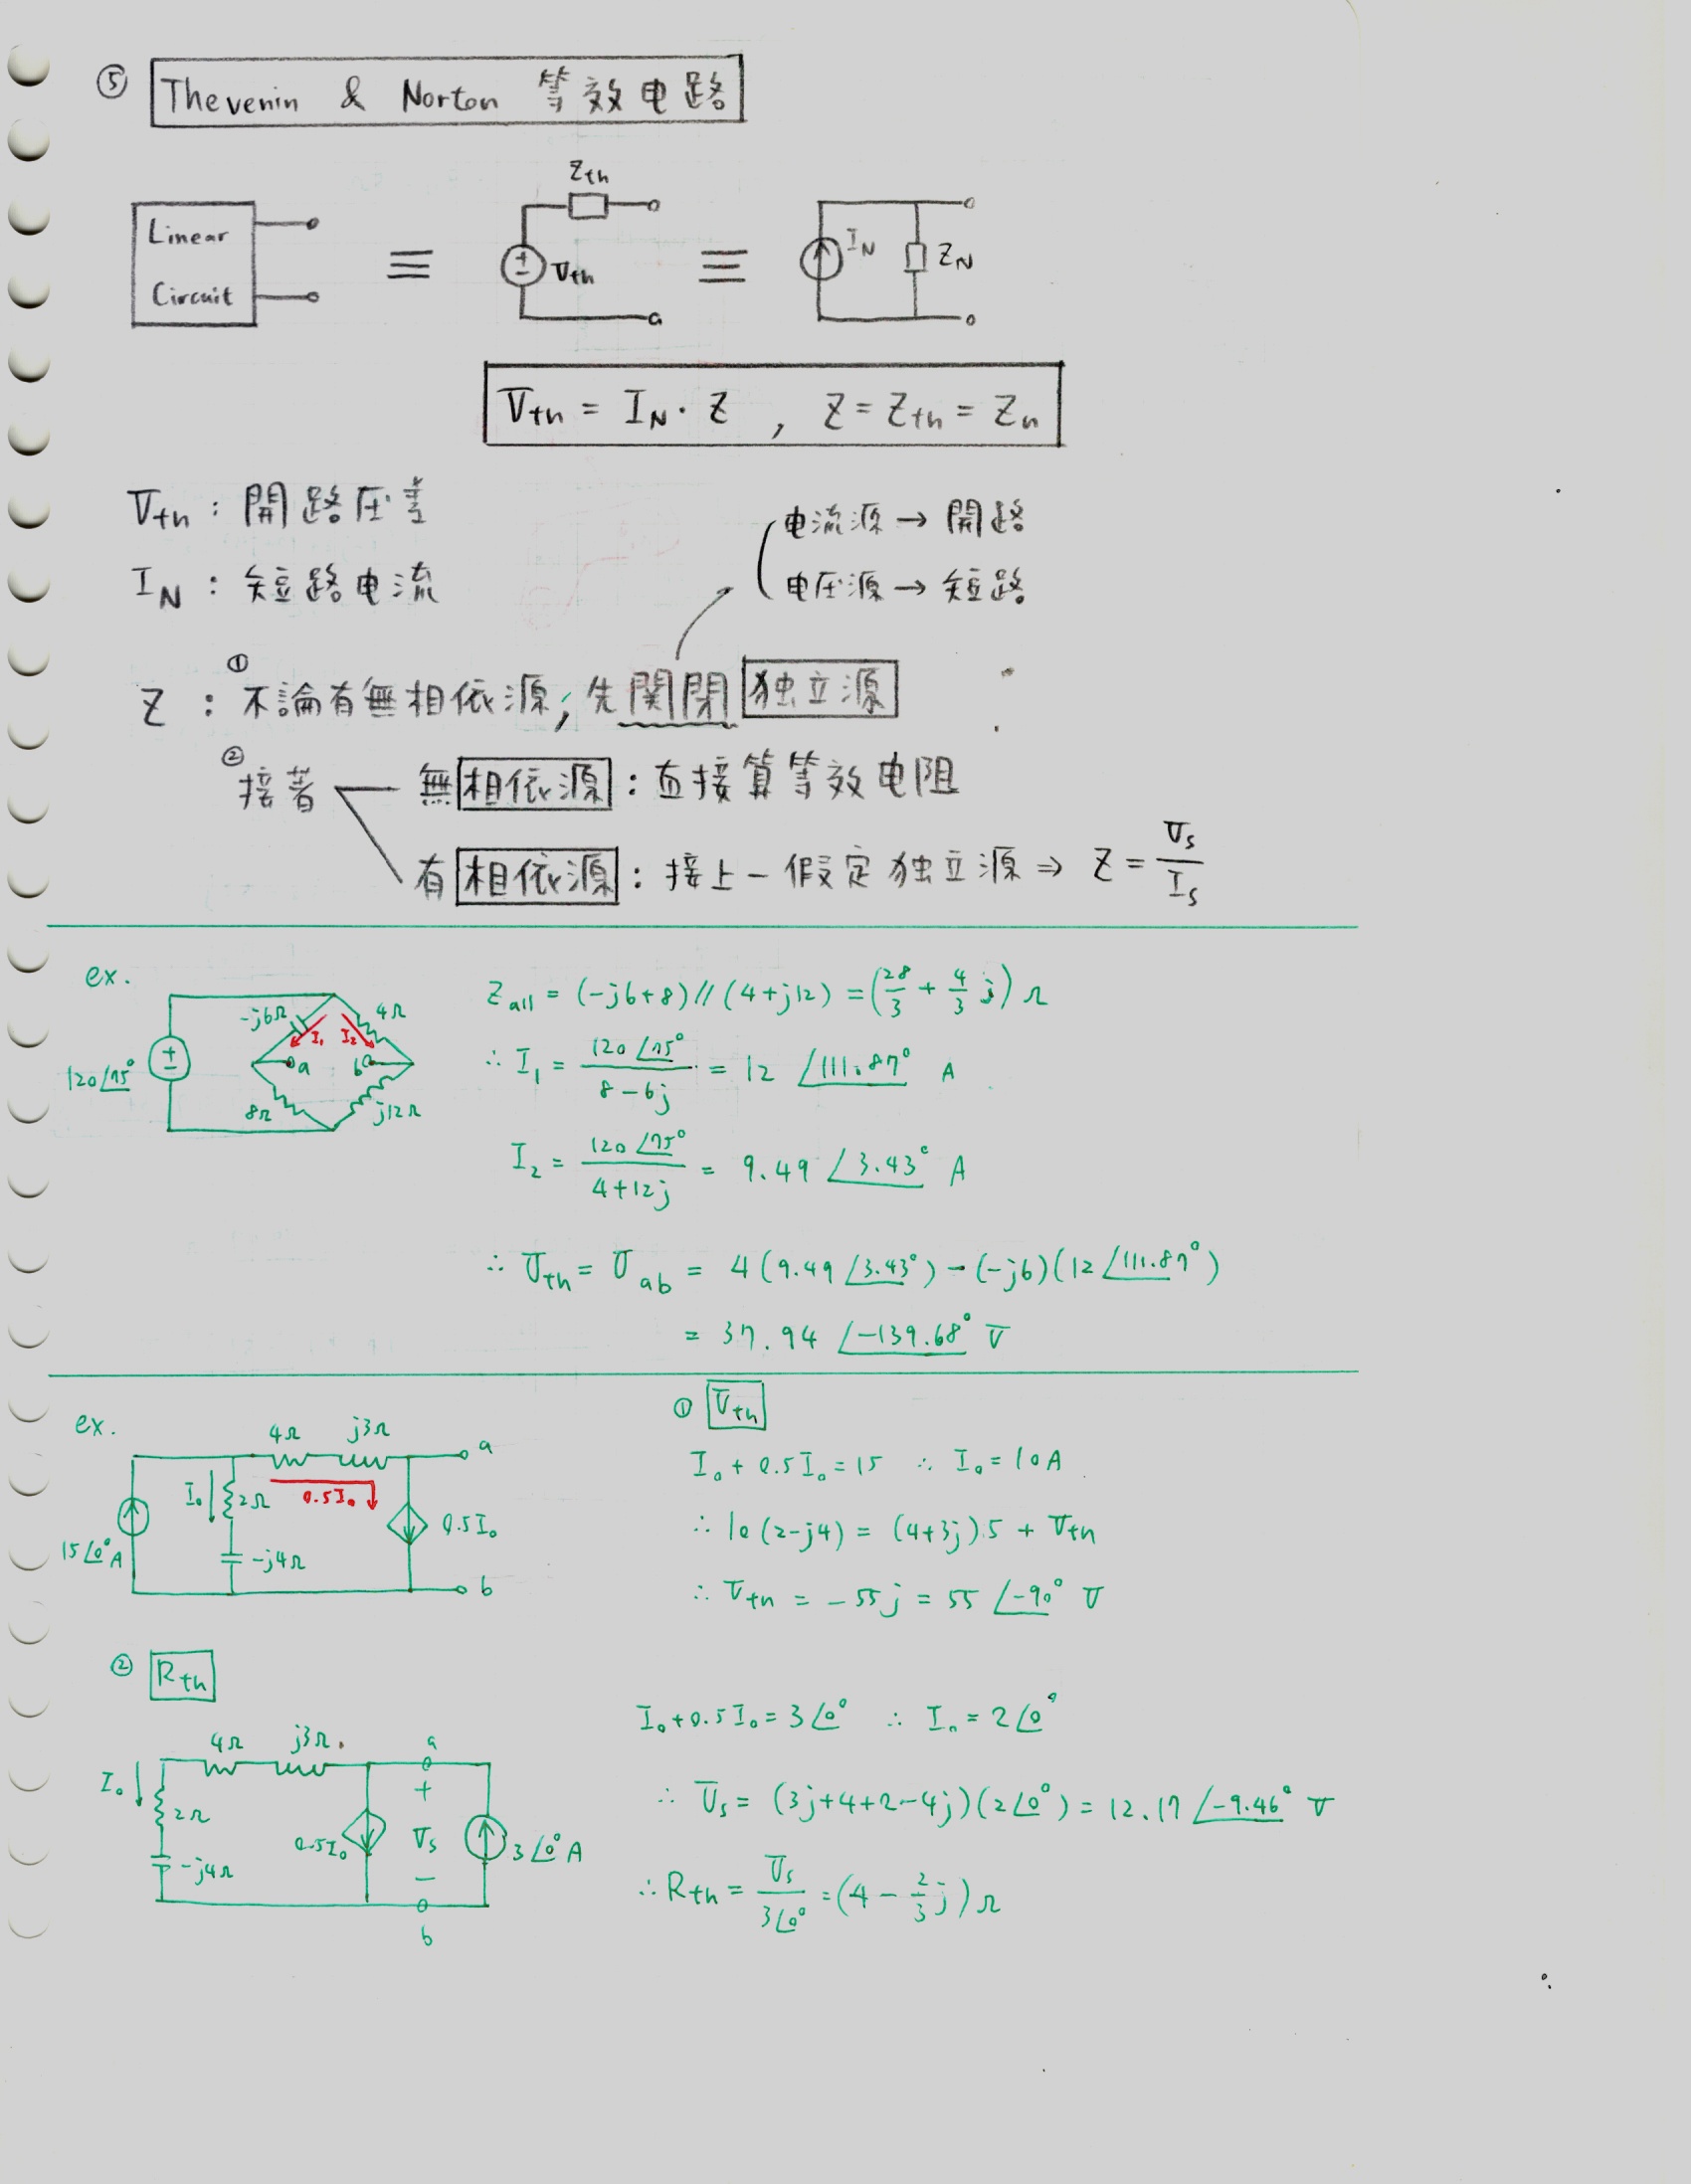 ⑤ Thevenin & Norton 等效电路
Linear
Circuit
≡
Zth
Vth
≡
IN
ZN
Vth = IN · Z , Z = Zth = Zn
Vth : 開路压差
IN : 短路电流
电流源 → 開路
电压源 → 短路
Z : ① 不論有無相依源, 先關閉 独立源
② 接著
無 相依源 : 直接算等效电阻
有 相依源 : 接上一假定独立源 ⇒ Z = Vs/Is
ex.
120∠75°
-j6Ω
4Ω
I1
I2
a
b
8Ω
j12Ω
Zall = (-j6+8) // (4+j12) = (28/3 + 4/3 j) Ω
∴ I1 = 120∠75° / 8-6j = 12 ∠111.87° A
I2 = 120∠75° / 4+12j = 9.49 ∠3.43° A
∴ Vth = Vab = 4 (9.49 ∠3.43°) - (-j6)(12 ∠111.87°)
= 37.94 ∠-139.68° V
ex.
4Ω
j3Ω
a
I0
2Ω
0.5I0
0.5I0
15∠0° A
-j4Ω
b
① Vth
I0 + 0.5I0 = 15 ∴ I0 = 10A
∴ 10(2-j4) = (4+3j).5 + Vth
∴ Vth = -55j = 55 ∠-90° V
② Rth
4Ω
j3Ω
a
I0
2Ω
-j4Ω
0.5I0
+
Vs
−
3∠0° A
b
I0+0.5I0 = 3∠0° ∴ I0 = 2∠0°
∴ Vs = (3j+4+2-4j)(2∠0°) = 12.17 ∠-9.46° V
∴ Rth = Vs / 3∠0° = (4 - 2/3 j) Ω